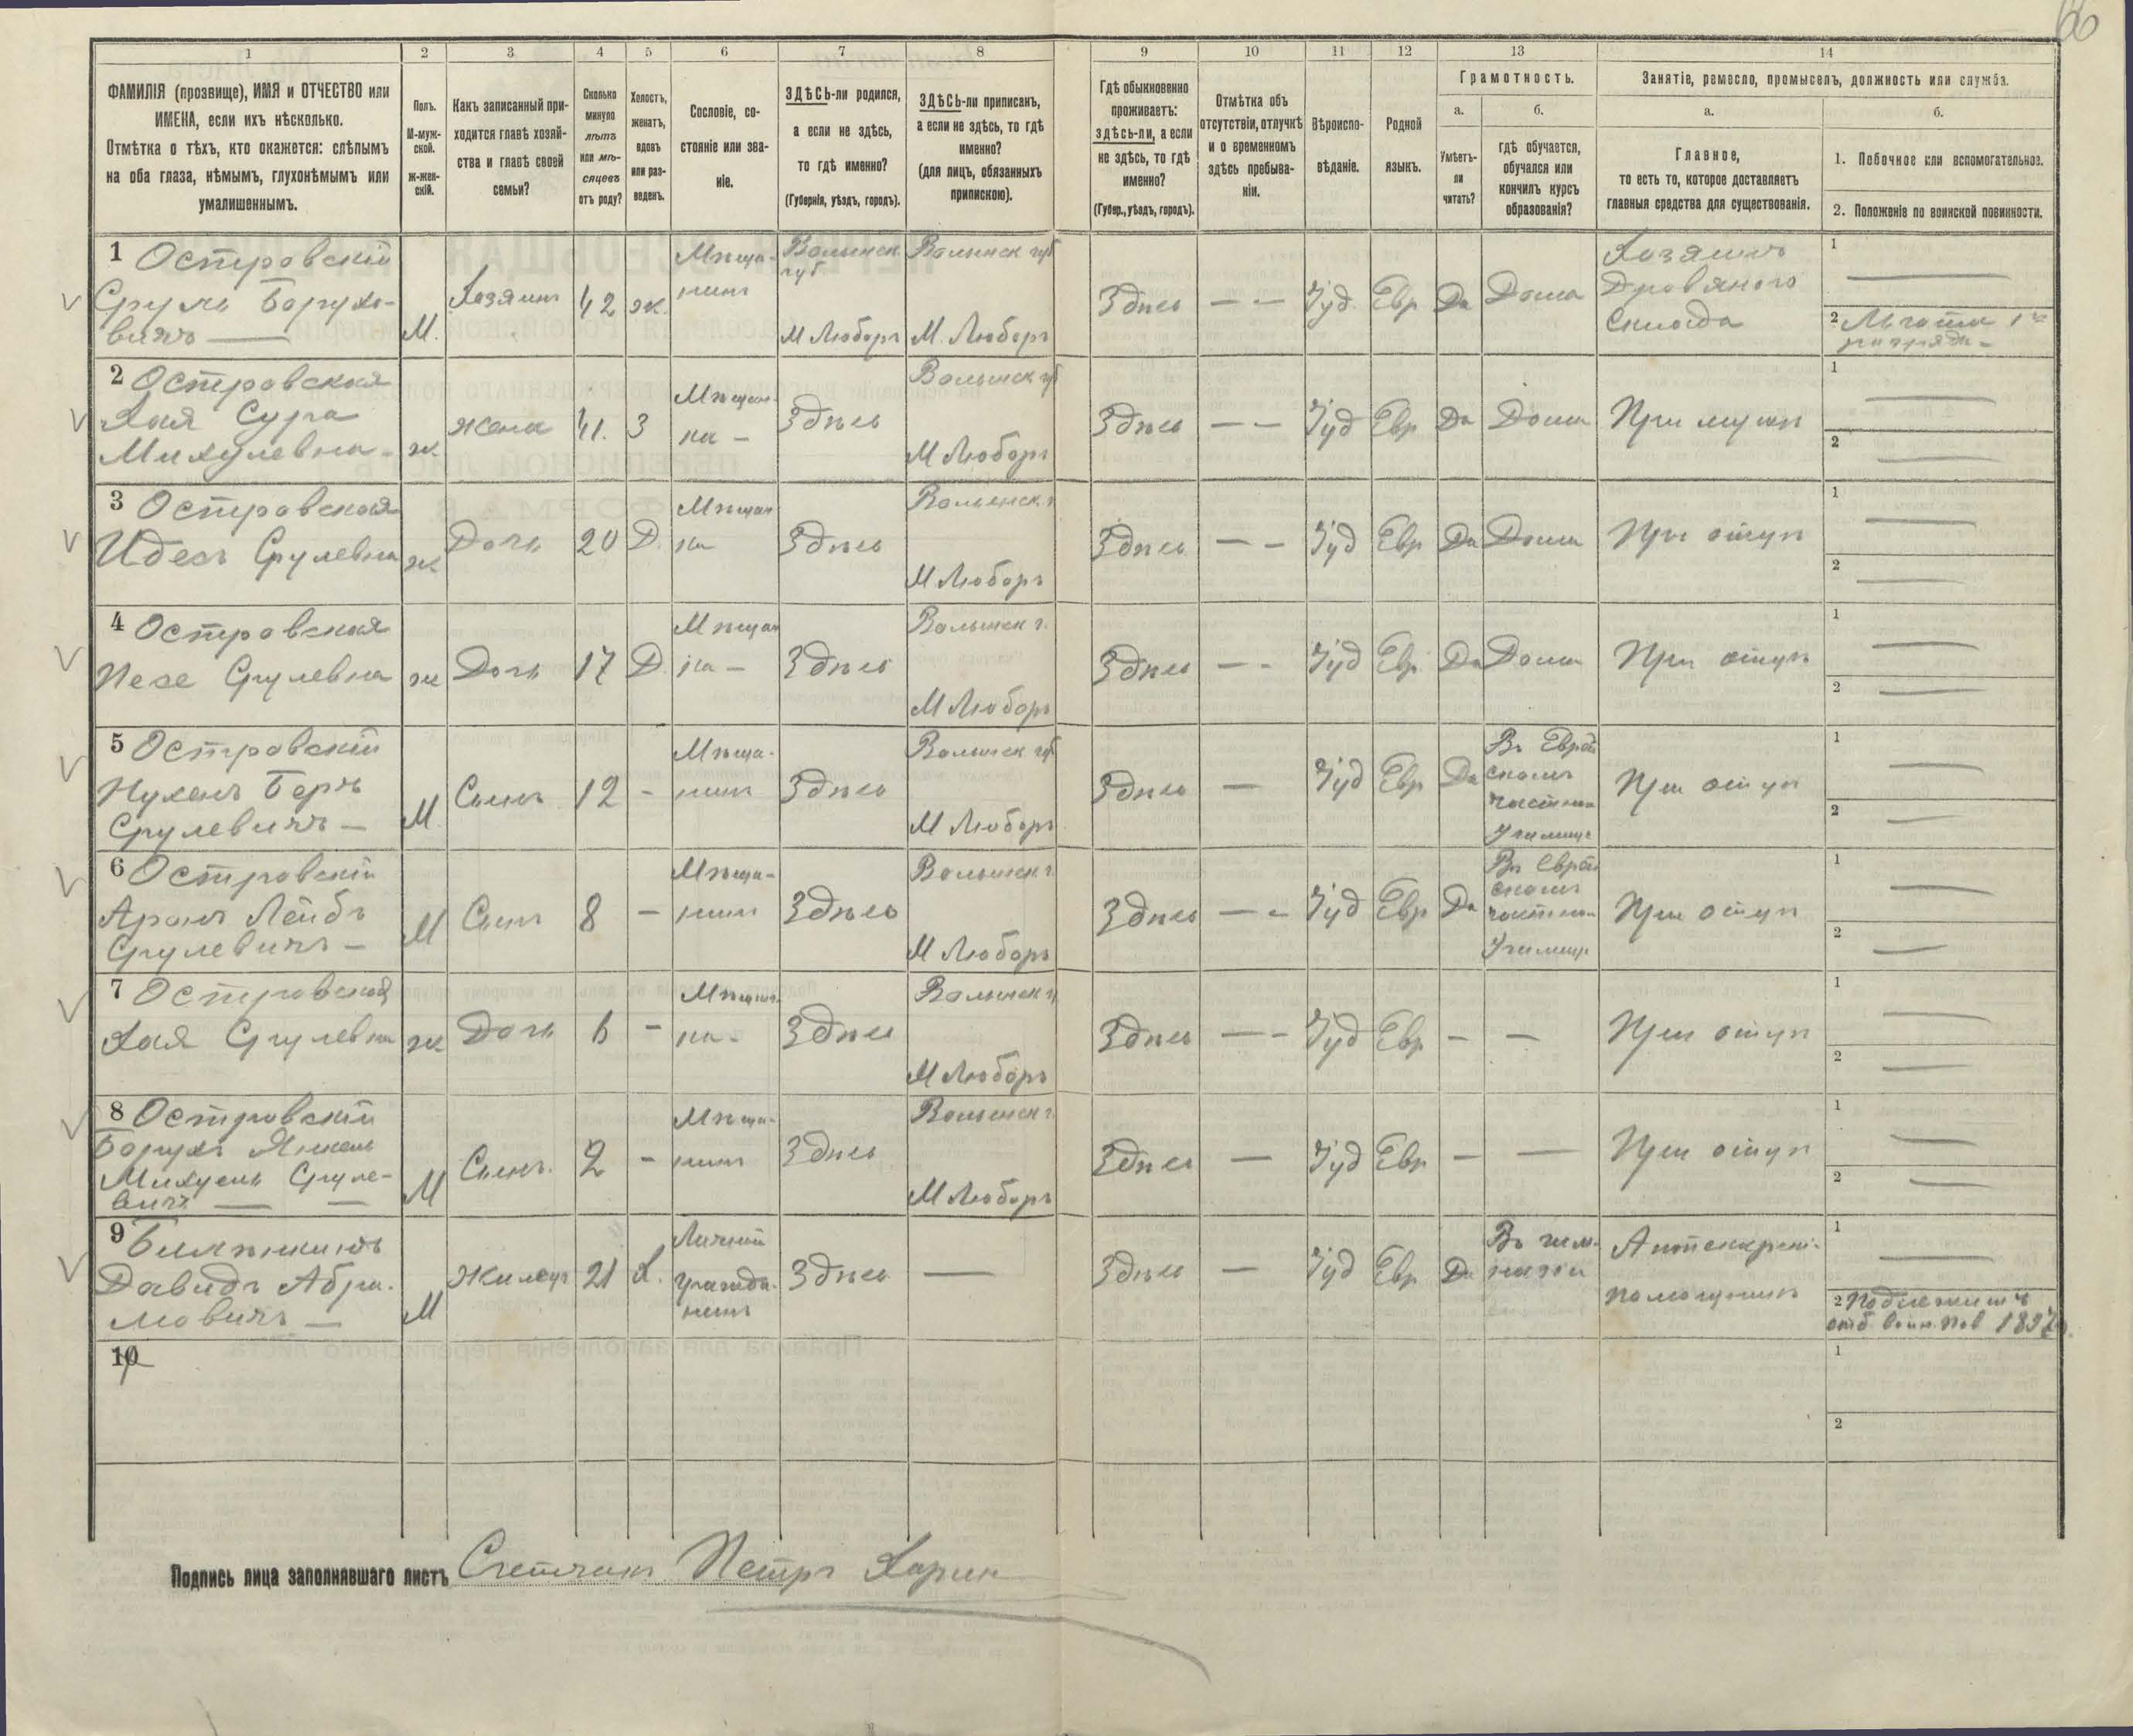 66
1 2 3 4 5 6 7 8 9 10 11 12 13 14
ФАМИЛІЯ (прозвище), ИМЯ и ОТЧЕСТВО или
ИМЕНА, если ихъ нѣсколько.
Отмѣтка о тѣхъ, кто окажется: слѣпымъ
на оба глаза, нѣмымъ, глухонѣмымъ или
умалишеннымъ.
Полъ.
М-муж-
ской.
ж-жен-
скій.
Какъ записанный при-
ходится главѣ хозяй-
ства и главѣ своей
семьи?
Сколько
минуло
лѣтъ
или мѣ-
сяцевъ
отъ роду?
Холостъ,
женатъ,
вдовъ
или раз-
веденъ.
Сословіе, со-
стояніе или зва-
ніе.
ЗДѢСЬ-ли родился,
а если не здѣсь,
то гдѣ именно?
(Губернія, уѣздъ, городъ).
ЗДѢСЬ-ли приписанъ,
а если не здѣсь, то гдѣ
именно?
(для лицъ, обязанныхъ
припискою).
Гдѣ обыкновенно
проживаетъ:
здѣсь-ли, а если
не здѣсь, то гдѣ
именно?
(Губер., уѣздъ, городъ).
Отмѣтка объ
отсутствіи, отлучкѣ
и о временномъ
здѣсь пребыва-
ніи.
Вѣроиспо-
вѣданіе.
Родной
языкъ.
Грамотность.
а. б.
Умѣетъ-
ли
читать?
гдѣ обучается,
обучался или
кончилъ курсъ
образованія?
Занятіе, ремесло, промыселъ, должность или служба.
а. б.
Главное,
то есть то, которое доставляетъ
главныя средства для существованія.
1. Побочное или вспомогательное.
2. Положеніе по воинской повинности.
1 Островскій
Сруль Борухо-
вичъ —
М.
Хозяинъ
42
ж.
Мѣща-
нинъ
Волынск
губ
М Любаръ
Волынск губ
М. Любаръ
Здѣсь
— —
Іуд.
Евр
Да
Дома
Хозяинъ
Дровяного
Склада
1 —
2 Льгота 1го
разряда
2 Островская
Хая Сура
Михулевна
ж
жена
41.
З
Мѣщан-
ка —
Здѣсь
Волынск губ
М Любаръ
Здѣсь
— —
Іуд
Евр
Да
Дома
При мужѣ
1 —
2 —
3 Островская
Идесъ Срулевна
ж
Дочь
20
Д.
Мѣщан
ка
Здѣсь
Волынск г.
М Любаръ
Здѣсь
— —
Іуд
Евр
Да
Дома
При отцѣ
1 —
2 —
4 Островская
Песе Срулевна
ж
Дочь
17
Д.
Мѣщан
ка —
Здѣсь
Волынск г.
М Любаръ
Здѣсь
— -
Іуд
Евр
Да
Дома
При отцѣ
1 —
2 —
5 Островскій
Нухемъ Беръ
Срулевичъ —
М
Сынъ
12
-
Мѣща-
нинъ
Здѣсь
Волынск губ
М Любаръ
Здѣсь
—
Іуд
Евр
Да
Въ Еврей
скомъ
частном
Училище
При отцѣ
1 —
2 —
6 Островскій
Аронъ Лейбъ
Срулевичъ —
М
Сынъ
8
—
Мѣща-
нин
Здѣсь
Волынск г.
М Любаръ
Здѣсь
— -
Іуд
Евр
Да
Въ Еврей
скомъ
частном
Училищ
При отцѣ
1 —
2 —
7 Островская
Хая Срулевна
ж
Дочь
6
-
Мѣщан
ка -
Здѣсь
Волынск г
М Любаръ
Здѣсь
— -
Іуд
Евр
-
—
При отцѣ
1 —
2 —
8 Островскій
Борухъ Янкель
Михуель Сруле-
вичъ — —
М
Сынъ.
2
-
Мѣща-
нинъ
Здѣсь
Волынск г
М Любаръ
Здѣсь
—
Іуд
Евр
-
—
При отцѣ
1 —
2 —
9
Давидъ Абра-
мовичъ —
М
Жилецъ
21
Х.
Личный
гражда-
нинъ
Здѣсь
—
Здѣсь
—
Іуд
Евр
Да
Въ гим-
назіи
Аптекарскі-
помощникъ
1 —
2 Подлежитъ
отб. воин. пов 1897г.
10
1
2
Подпись лица заполнявшаго листъ Счетчикъ Петръ Харин